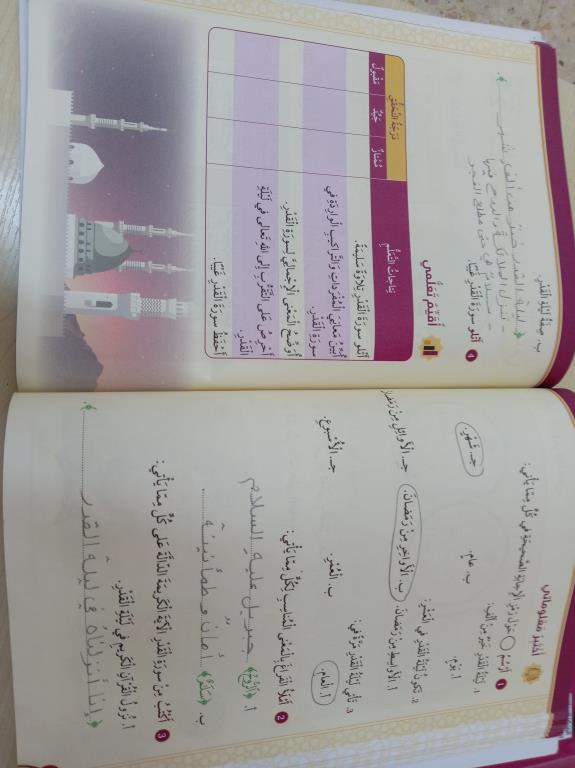 أختبر معلوماتي
1 أرسم ○ حول رمز الإجابة الصحيحة في كل مما يأتي:
1. ليلة القدر خير من ألف:
أ. يوم. ب. عام. جـ. شهر.
2. تكون ليلة القدر في العشر:
أ. الأواسط من رمضان. ب. الأواخر من رمضان. جـ. الأوائل من رمضان
3. تأتي ليلة القدر مرة في:
أ. العام. ب. العمر. جـ. الأسبوع.
2 أملأ الفراغ بالمعنى المناسب لكل مما يأتي:
أ. ﴿الروح﴾ جبريل عليه السلام
ب. ﴿سلام﴾ أمان وطمأنينة
3 أكتب من سورة القدر الآية الكريمة الدالة على كل مما يأتي:
أ. نزول القرآن الكريم في ليلة القدر.
﴿إنا أنزلناه في ليلة القدر﴾.
ب. صفة ليلة القدر.
﴿ليلة القدر خير من ألف شهر
تنزل الملائكة والروح فيها
سلام هي حتى مطلع الفجر
4 أتلو سورة القدر غيبا.
أقيم تعلمي
نتاجات التعلم درجة التحقق
ممتاز جيد مقبول
أتلو سورة القدر تلاوة سليمة.
أبين معاني المفردات والتراكيب الواردة في
سورة القدر.
أوضح المعنى الإجمالي لسورة القدر.
أحرص على التقرب إلى الله تعالى في ليلة
القدر.
أحفظ سورة القدر غيبا.